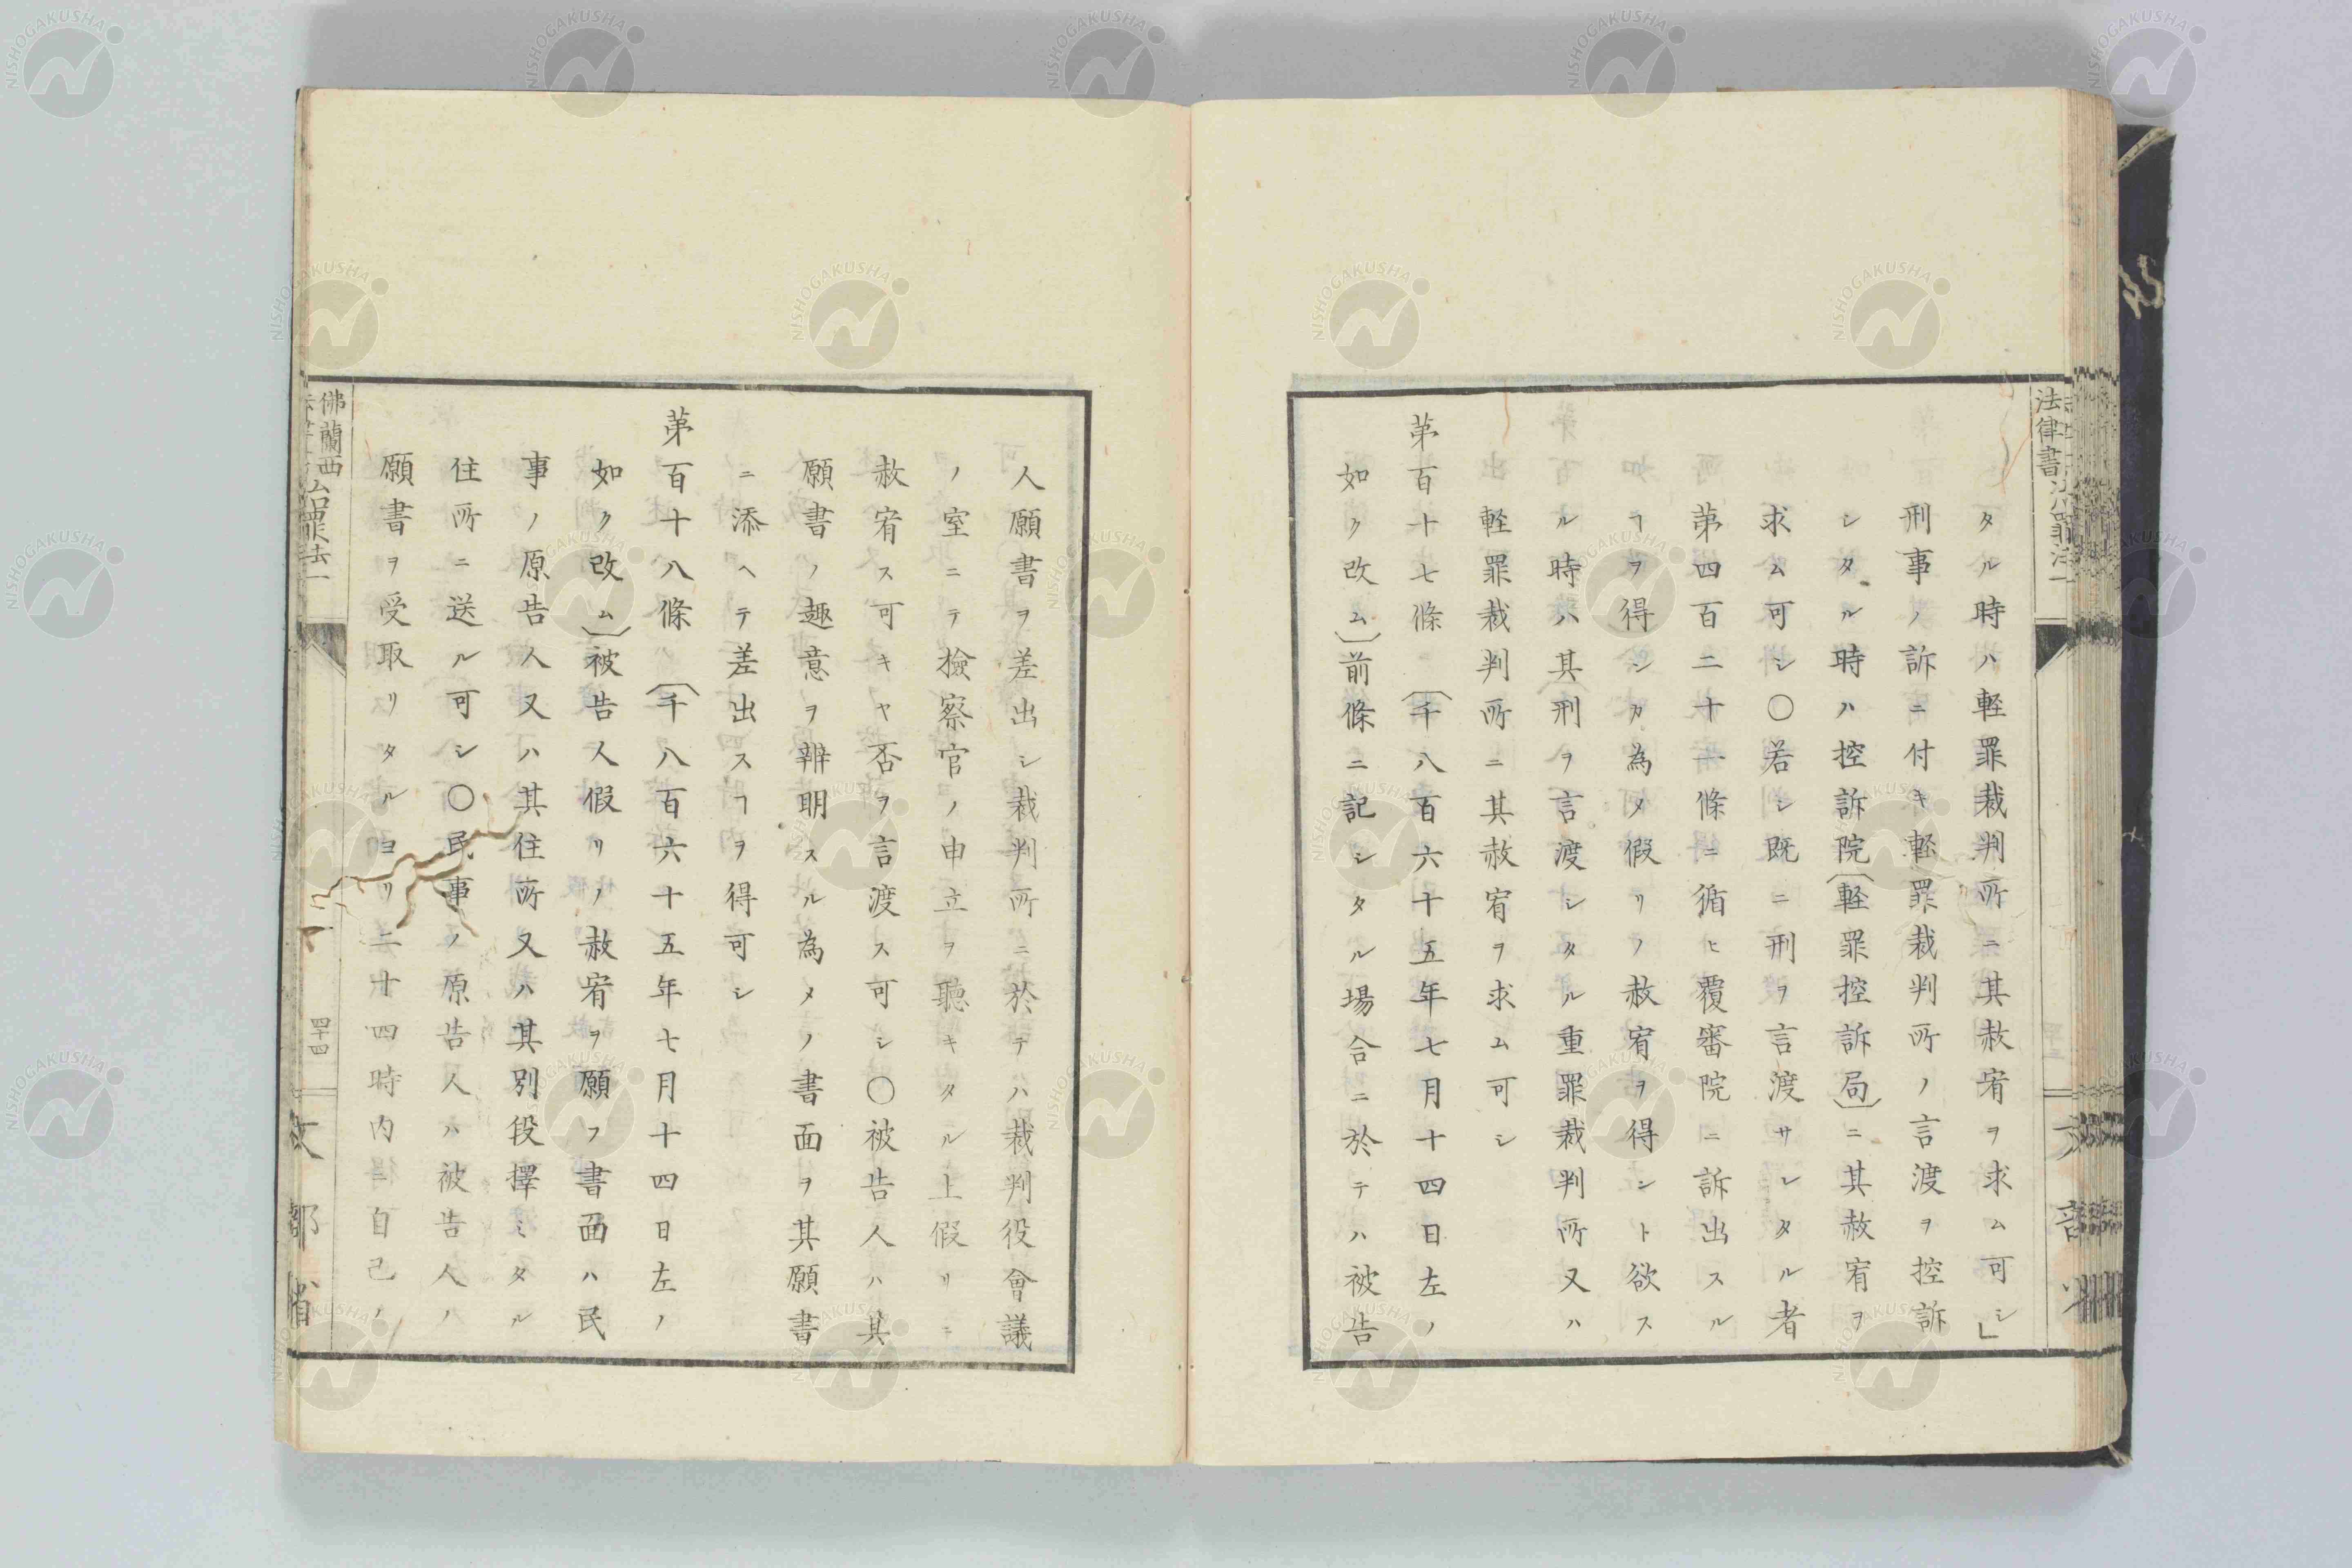 タル時ハ軽罪裁判所ニ其赦宥ヲ求ム可シ」
刑事ノ訴ニ付キ軽罪裁判所ノ言渡ヲ控訴
シタル時ハ控訴院〔軽罪控訴局〕ニ其赦宥ヲ
求ム可シ〇若シ既ニ刑ヲ言渡サレタル者
第四百二十一條ニ循ヒ覆審院ニ訴出スル
ヿヲ得ンカ為メ假リノ赦宥ヲ得ント欲ス
ル時ハ其刑ヲ言渡シタル重罪裁判所又ハ
軽罪裁判所ニ其赦宥ヲ求ム可シ
第百十七條〔千八百六十五年七月十四日左ノ
如ク改ム〕前條ニ記シタル場合ニ於テハ被告
人願書ヲ差出シ裁判所ニ於テハ裁判役會議
ノ室ニテ撿察官ノ申立ヲ聽キタル上假リニ
赦宥ス可キヤ否ヲ言渡ス可シ〇被告人ハ其
願書ノ趣意ヲ辨明スル為メノ書面ヲ其願書
ニ添ヘテ差出スヿヲ得可シ
第百十八條〔千八百六十五年七月十四日左ノ
如ク改ム〕被告人假リノ赦宥ヲ願フ書面ハ民
事ノ原告人又ハ其住所又ハ其別段擇ミタル
住所ニ送ル可シ〇民事ノ原告人ハ被告人ノ
願書ヲ受取リタルヨリ二十四時内ニ自己ノ
佛蘭西
治罪法一
四十四
文部省
法律書
NISHOGAKUSHA